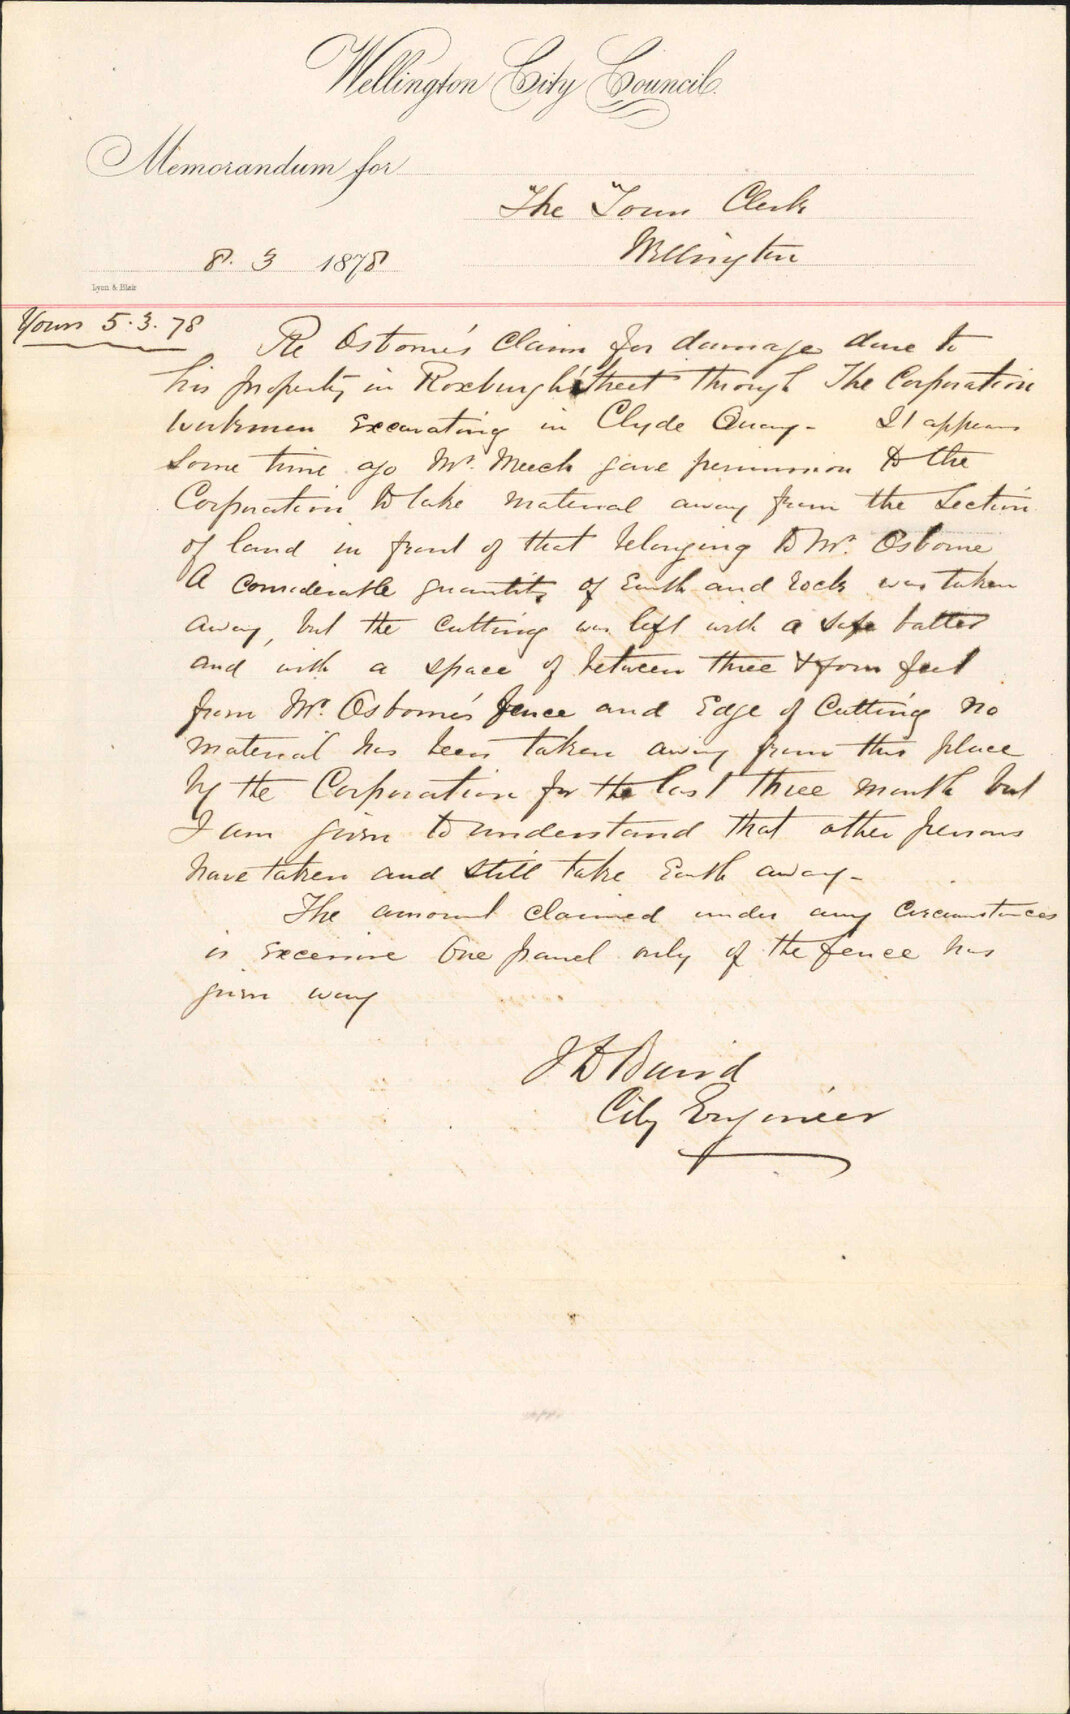 Wellington City Council.
Memorandum for
The Town Clerk
Wellington
8. 3 1878
Lyon & Blair
Yours 5.3.78
Re Osborne's Claim for damage done to
his property in Roxburgh Street through The Corporation
workmen excavating in Clyde Quay - It appears
some time ago Mr. Meech gave permission to the
Corporation to take material away from the Section
of land in front of that belonging to Mr. Osborne
A considerable quantity of Earth and rock was taken
away, but the cutting was left with a safe batter
and with a space of between three & four feet
from Mr. Osborne's fence and Edge of Cutting No
material has been taken away from this place
by the Corporation for the last three month but
I am given to understand that other persons
have taken and still take Earth away -
The amount claimed under any Circumstances
is excessive One panel only of the fence has
given way
J D Baird
City Engineer